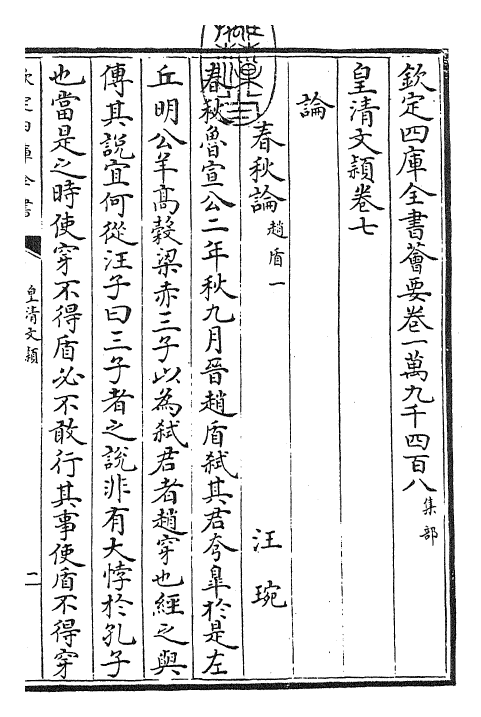 欽定四庫全書薈要卷一萬九千四百八集部
皇清文穎卷七
論
春秋論趙盾一
汪琬
春秋魯宣公二年秋九月晉趙盾弒其君夸臯於是左
丘明公羊髙穀梁赤三子以為弒君者趙穿也經之與
傳其說宜何從汪子曰三子者之說非有大悖於孔子
也當是之時使穿不得盾必不敢行其事使盾不得穿
欽定四庫全書
皇清文穎
二